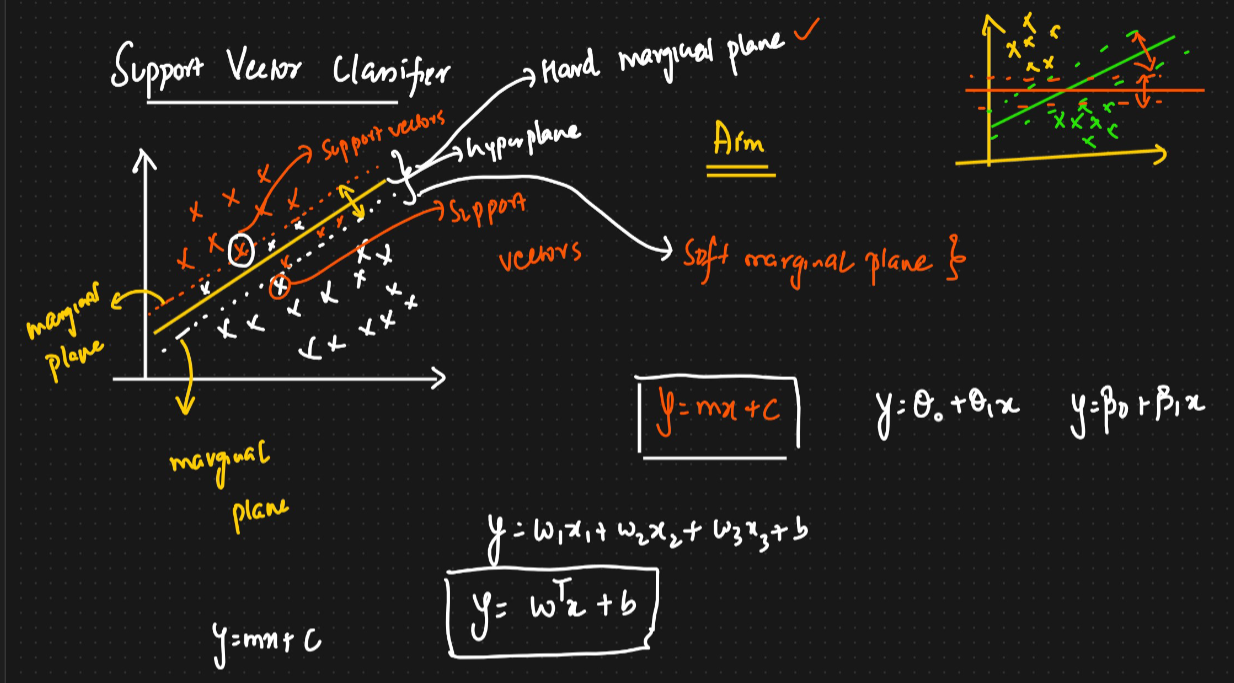 Support Vector Classifier
Hard marginal plane ✓
Support vectors
hyperplane
Aim
Support
vectors
Soft marginal plane }
marginal
plane
marginal
plane
y=mx+c
y=θ₀+θ₁x
y=β₀+β₁x
y=w₁x₁+w₂x₂+w₃x₃+b
y=wᵀx+b
y=mx+c